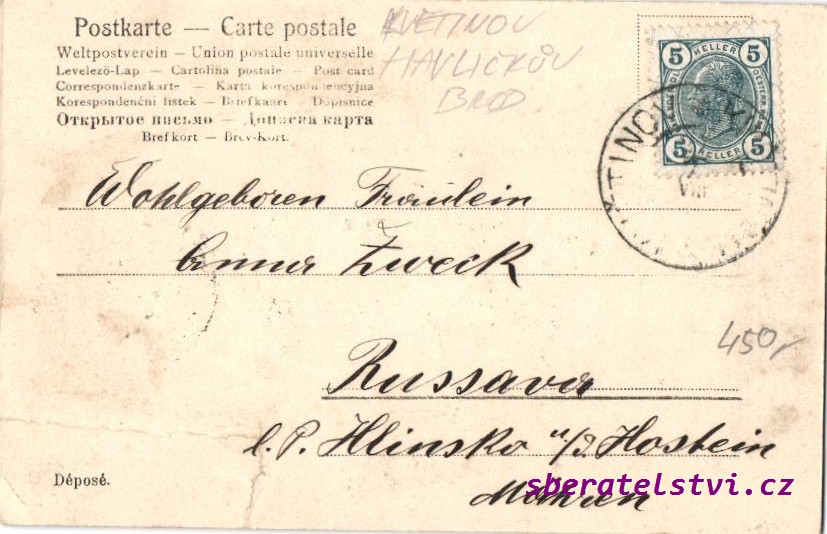 Postkarte — Carte postale
Weltpostverein — Union postale universelle
Levelező-Lap — Cartolina postale — Post card
Correspondenzkarte — Karta korespondencyjna
Korespondenční listek — Briefkaart — Dopisnice
Открытое письмо — Дописна карта
Brefkort — Brev-Kort.
KVĚTINOV
HAVLIČKŮV
BROD
5 HELLER 5
5 HELLER 5
TINOV
VIII
Wohlgeboren Fräulein
Anna Zweck
450,-
Russava
l. P. Hlinsko u/s Hostein
Mähren
Déposé.
sberatelstvi.cz